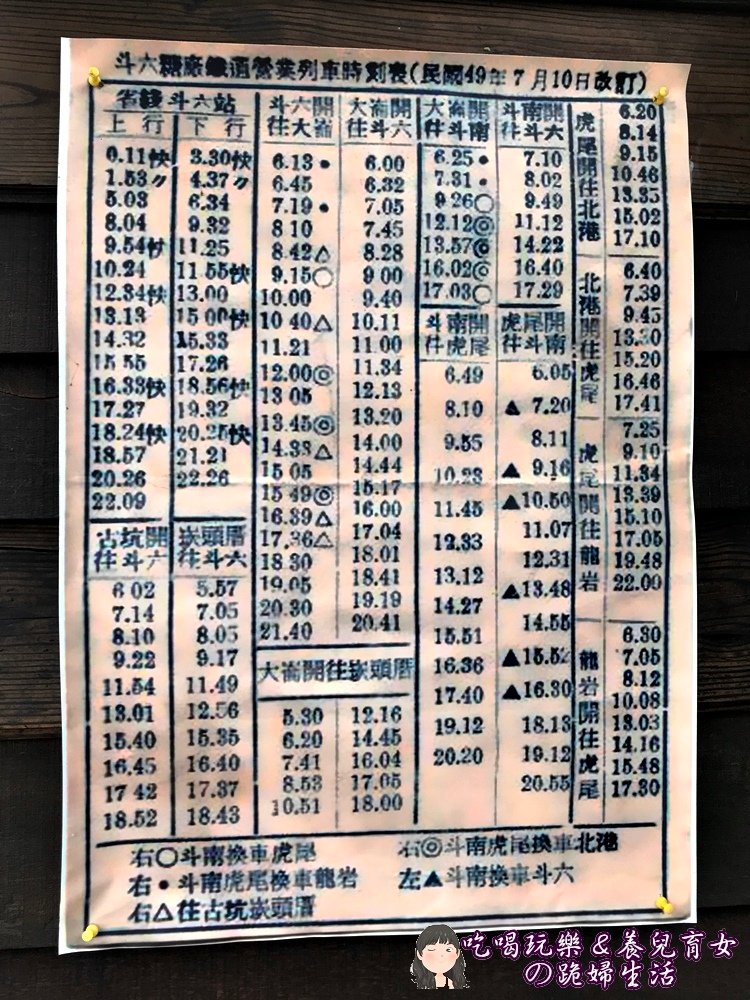 斗六糖廠鐵道營業列車時刻表(民國49年7月10日改訂)
省綫斗六站
上行
0.11快
1.53〃
5.03
8.04
9.54快
10.24
12.34快
13.13
14.32
15.55
16.33快
17.27
18.24快
18.57
20.26
22.09
下行
3.30快
4.37〃
6.34
9.32
11.25
11.55快
13.00
15.00快
15.33
17.26
18.56快
19.32
20.25快
21.21
22.26
古坑開
往斗六
6 02
7.14
8.10
9.22
11.54
13.01
15.40
16.45
17 42
18.52
崁頭厝
往斗六
5.57
7.05
8.05
9.17
11.49
12.56
15.35
16.40
17.37
18.43
斗六開
往大崙
6.13●
6.45
7.19●
8.10
8.42△
9.15○
10.00
10 40△
11.21
12.00◎
13 05
13.45◎
14.33△
15.05
15.49◎
16.39△
17.36△
18.30
19.05
20.30
21.40
大崙開
往斗六
6.00
6.32
7.05
7.45
8.28
9 00
9.40
10.11
11.00
11.34
12.13
13.20
14.00
14.44
15.17
16.00
17.04
18.01
18.41
19.19
20.41
大崙開往崁頭厝
5.30 12.16
6.20 14.45
7.41 16.04
8.53 17.05
10.51 18.00
大崙開
往斗南
6.25●
7.31●
9 26○
12.12◎
13.57◎
16.02◎
17.03○
斗南開
往斗六
7.10
8.02
9.49
11.12
14.22
16.40
17.29
斗南開
往虎尾
6.49
8.10
9.55
10.23
11.45
12.33
13.12
14.27
15.51
16.36
17.40
19.12
20.20
虎尾開
往斗南
6.05
▲7.20
8.11
▲9.16
▲10.50
11.07
12.31
▲13.48
14.55
▲15.52
▲16.30
18.13
19.12
20.55
虎尾開往北港
6.20
8.14
9.15
10.46
13.35
15.02
17.10
北港開往虎尾
6.40
7.39
9.45
13.30
15.20
16.46
17.41
虎尾開往龍岩
7.25
9.10
11.34
13.39
15.10
17.05
19.48
22.00
龍岩開往虎尾
6.30
7.05
8.12
10.08
13.03
14.16
15.48
17.30
右○斗南換車虎尾
右◎斗南虎尾換車北港
右●斗南虎尾換車龍岩
左▲斗南換車斗六
右△往古坑崁頭厝
吃喝玩樂&養兒育女
の跪婦生活